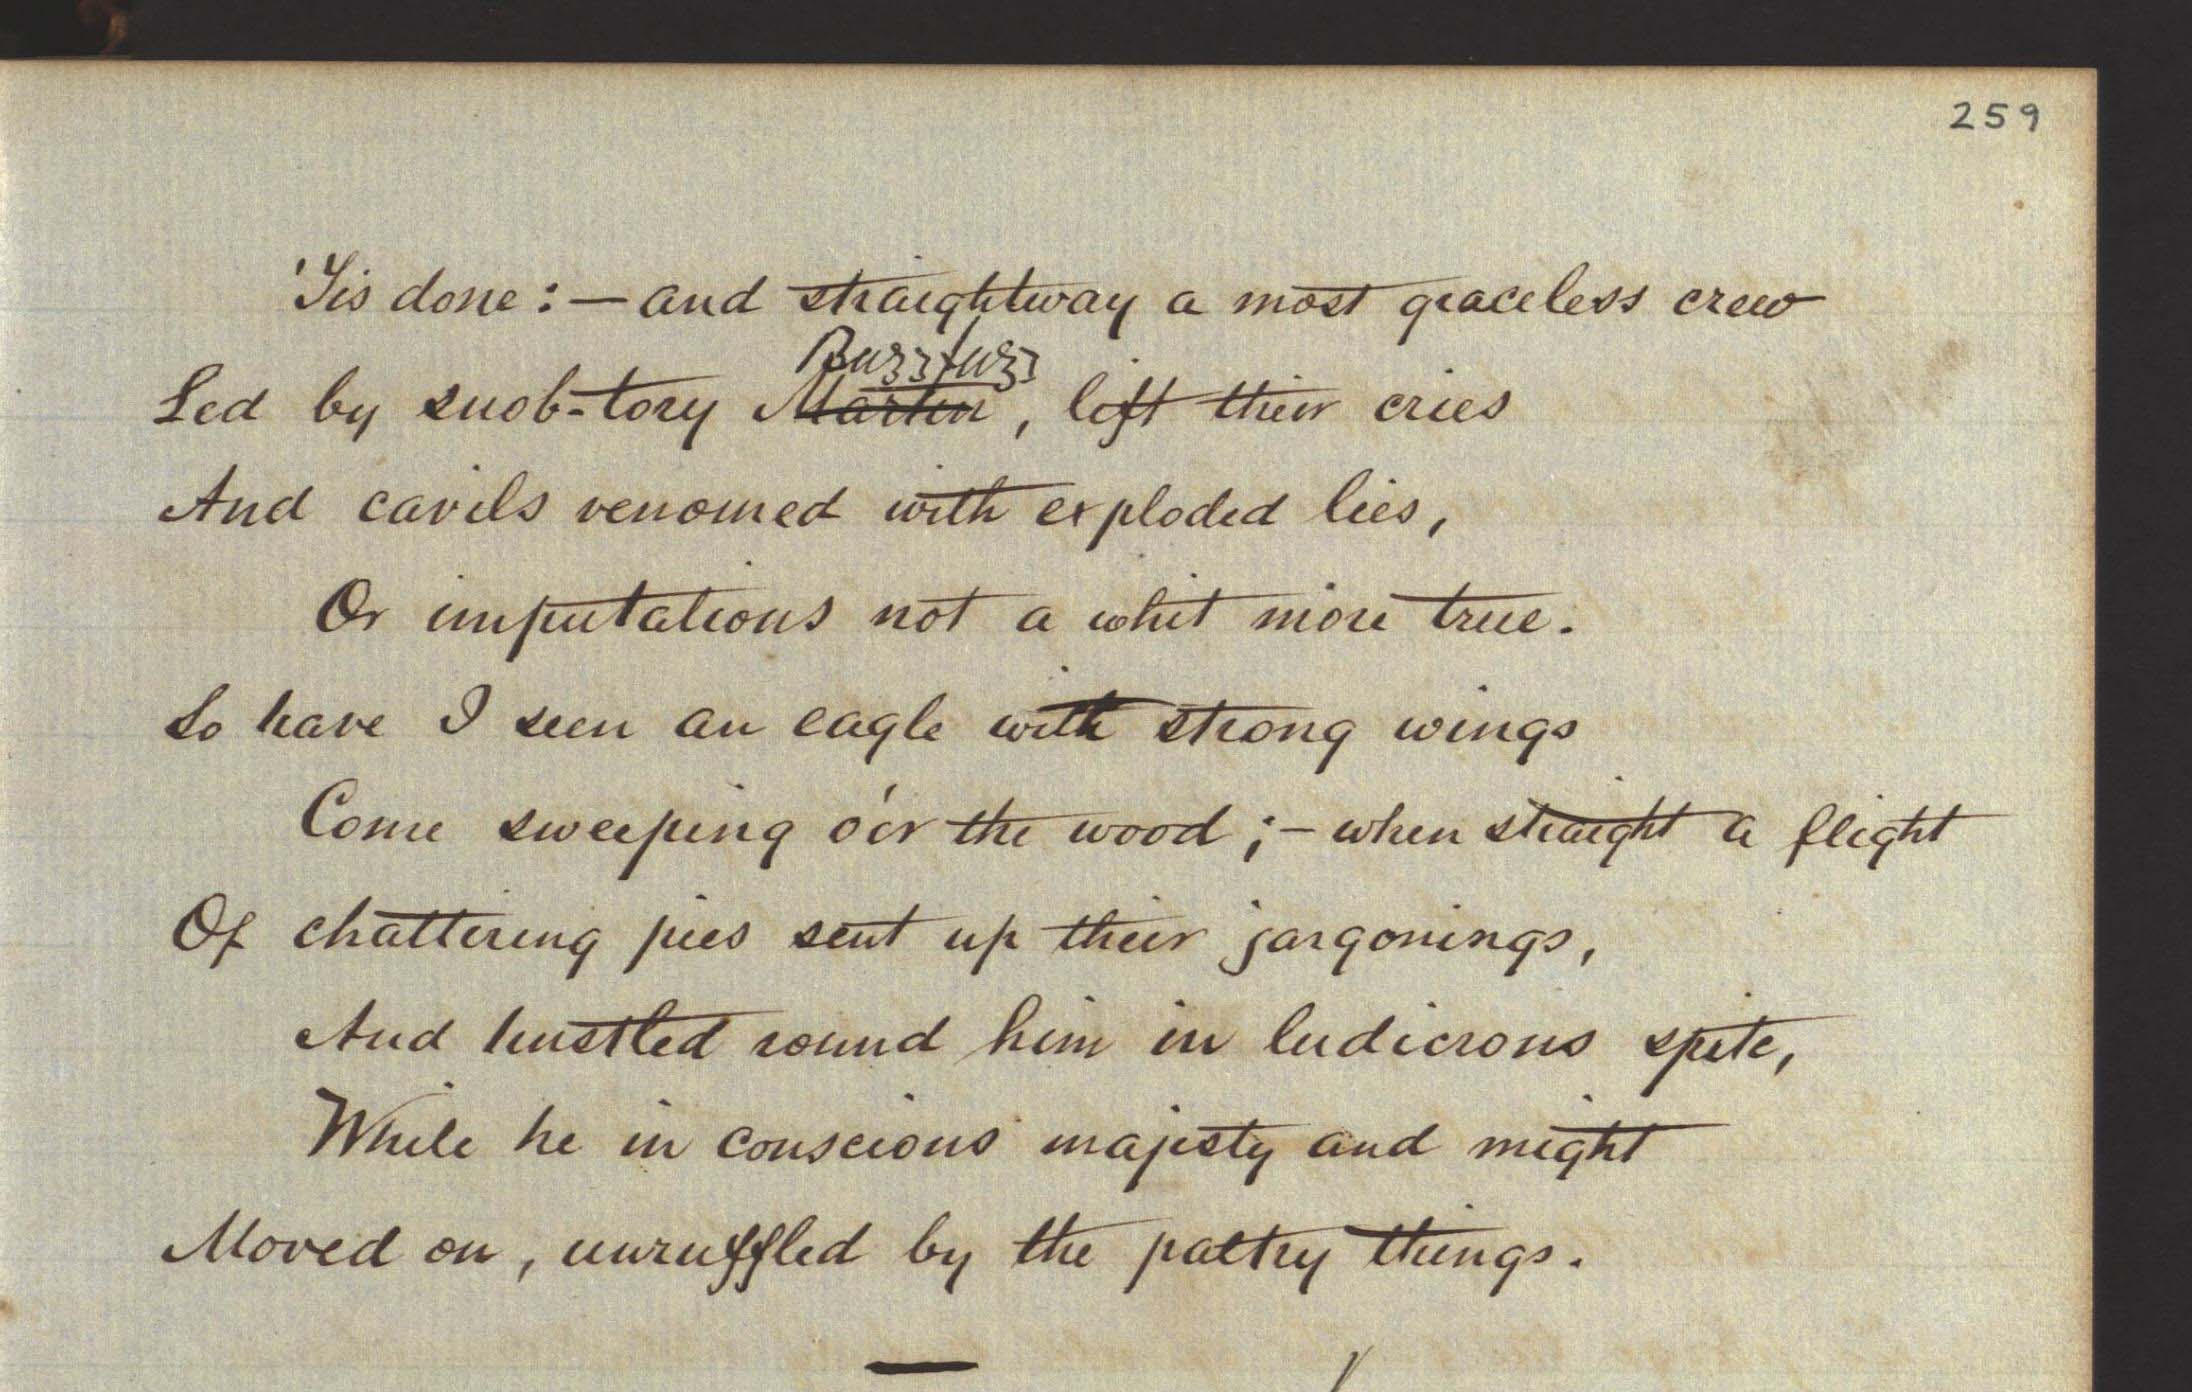 259
'Tis done:— and straightway a most graceless crew
Buzzfuzz
Led by snob-tory Martin, lift their cries
And cavils venomed with exploded lies,
Or imputations not a whit more true.
So have I seen an eagle with strong wings
Come sweeping o'er the wood;— when straight a flight
Of chattering pies sent up their jargonings,
And hustled round him in ludicrous spite,
While he in conscious majesty and might
Moved on, unruffled by the paltry things.